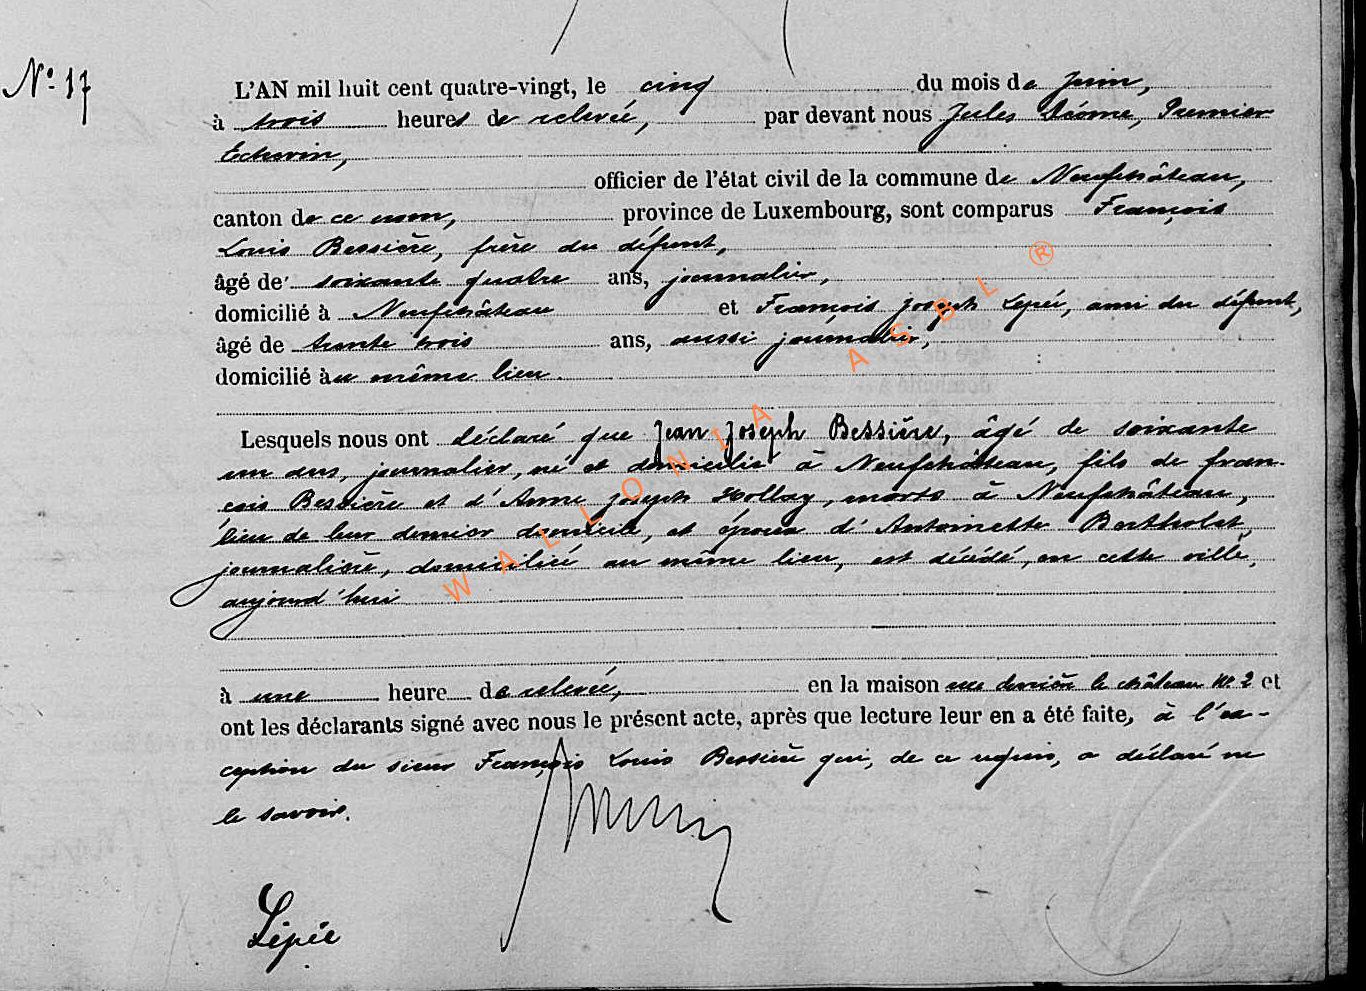 N° 17
L'AN mil huit cent quatre-vingt, le cinq du mois de juin,
à trois heures de relevée, par devant nous Jules Premier
Echevin,
officier de l'état civil de la commune de Neufchâteau,
canton de ce nom, province de Luxembourg, sont comparus François
Louis Bessière, frère du défunt,
âgé de soixante quatre ans, journalier,
domicilié à Neufchâteau et François Joseph Lepée, ami du défunt,
âgé de trente trois ans, aussi journalier,
domicilié au même lieu.
Lesquels nous ont déclaré que Jean Joseph Bessière, âgé de soixante
un ans, journalier, né et domicilié à Neufchâteau, fils de Fran-
çois Bessière et d'Anne Joseph Hollay, morts à Neufchâteau,
lieu de leur dernier domicile, et époux d'Antoinette Bertholet,
journalière, domiciliée au même lieu, est décédé, en cette ville,
aujourd'hui
à une heure de relevée, en la maison rue derrière le château N° 2 et
ont les déclarants signé avec nous le présent acte, après que lecture leur en a été faite, à l'ex-
ception du sieur François Louis Bessière qui, de ce requis, a déclaré ne
le savoir.
Lépée
WALLONIA ASBL ®